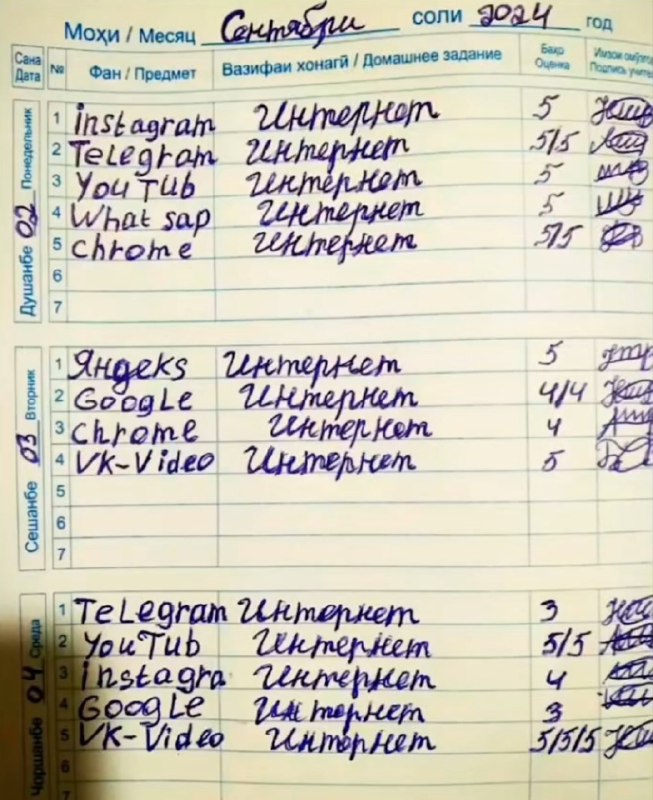 Моҳи / Месяц Сентябри соли 2024 год
Сана Дата № Фан / Предмет Вазифаи хонагӣ / Домашнее задание Баҳо Оценка Имзои Подпись
Душанбе 02 Понедельник
1 instagram Интернет 5
2 Telegram Интернет 5/5
3 YouTub Интернет 5
4 What sap Интернет 5
5 chrome Интернет 5/5
6
7
Сешанбе 03 Вторник
1 Яндекs Интернет 5
2 GoogLe Интернет 4/4
3 chrome Интернет 4
4 VK-Video Интернет 5
5
6
7
Чоршанбе 04 Среда
1 TeLegram Интернет 3
2 YouTub Интернет 5/5
3 instagra Интернет 4
4 GoogLe Интернет 3
5 VK-Video Интернет 5/5/5
6
7